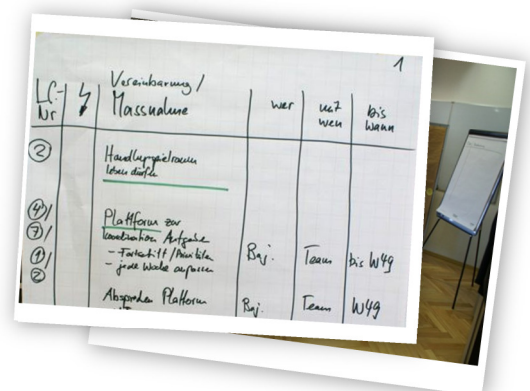 1
LC-
Nr
Vereinbarung /
Massnahme
wer
mit
wem
bis
wann
2
Handlungsspielraum
leben dürfen
4 /
7 /
1 /
2
Plattform zur
Koordination Aufgabe
- Fortschritt / Prioritäten
- jede Woche anpassen
Baj.
Team
bis W49
Absprechen Plattform
Baj.
Team
W49